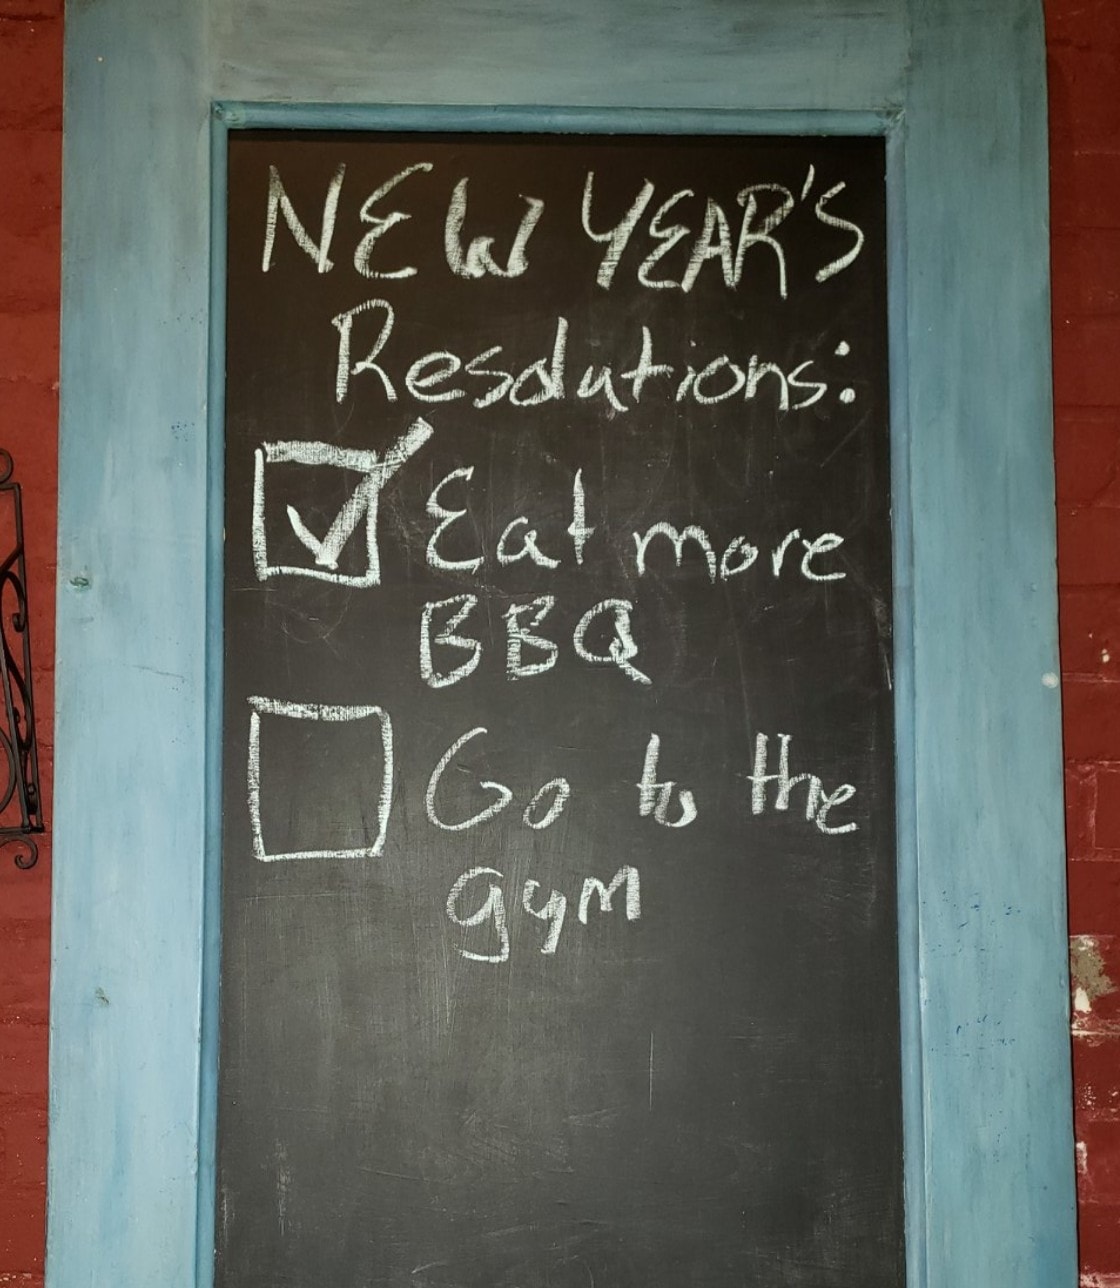 NEW YEAR'S
Resolutions:
Eat more
BBQ
Go to the
gym